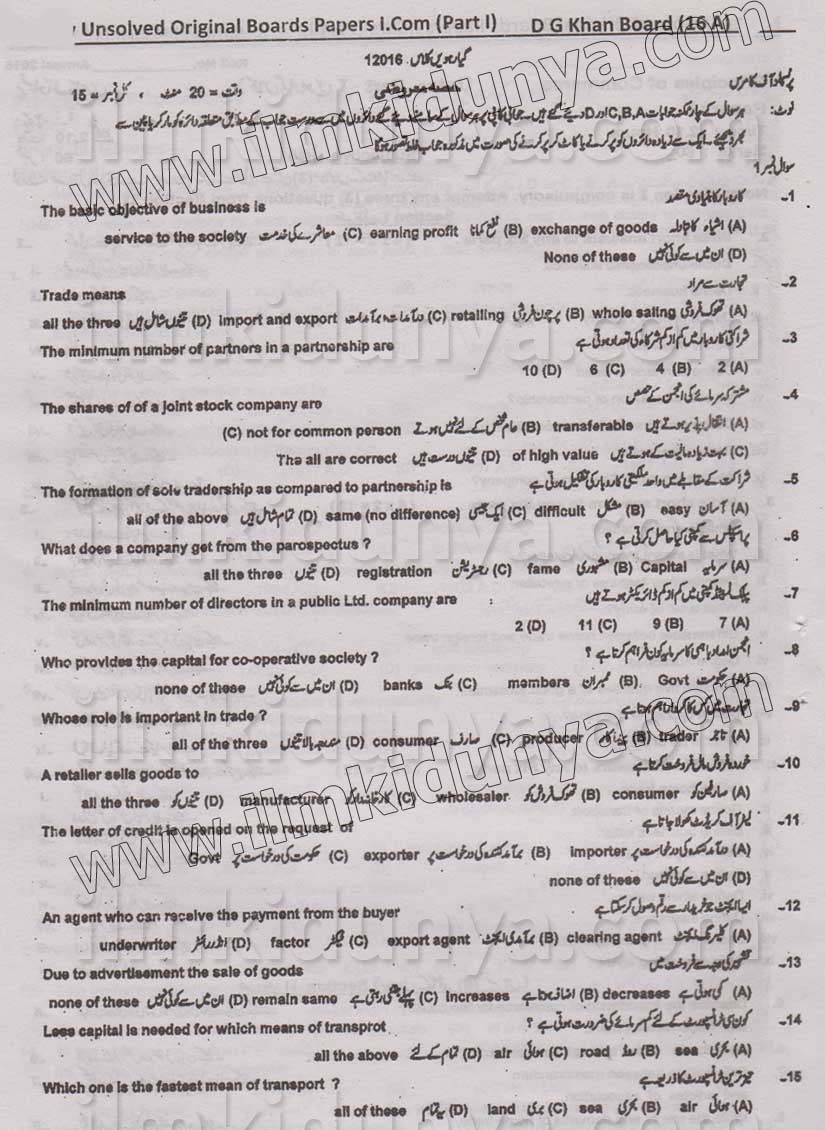 Unsolved Original Boards Papers I.Com (Part I) D G Khan Board (16 A)
گیارہویں کلاس 12016
پرنسپلز آف کامرس وقت = 20 منٹ ، کل نمبر = 15
نوٹ: ہر سوال کے چار ممکنہ جوابات C,B,A اور D دیے گئے ہیں۔ جوابی کاپی پر ہر سوال کے سامنے دیے گئے دائروں میں سے درست جواب کے مطابق متعلقہ دائرہ کو مارکر یا پین سے
بھر دیجئے۔ ایک سے زیادہ دائروں کو پر کرنے یا کاٹ کر پر کرنے کی صورت میں مذکورہ جواب غلط تصور ہوگا
سوال نمبر 1
1- کاروبار کا بنیادی مقصد
The basic objective of business is
(A) اشیاء کا تبادلہ exchange of goods (B) نفع کمانا earning profit (C) معاشرے کی خدمت service to the society
(D) ان میں سے کوئی نہیں None of these
2- تجارت سے مراد
Trade means
(A) تھوک فروشی whole saling (B) پرچون فروشی retailing (C) درآمدات و برآمدات import and export (D) تینوں شامل ہیں all the three
3- شراکتی کاروبار میں کم از کم شرکاء کی تعداد ہوتی ہے
The minimum number of partners in a partnership are
2 (A) 4 (B) 6 (C) 10 (D)
4- مشترکہ سرمائے کی انجمن کے حصص
The shares of of a joint stock company are
(A) انتقال پذیر ہوتے ہیں transferable (B) عام شخص کے لئے نہیں ہوتے not for common person (C)
(C) بہت زیادہ مالیت کے ہوتے ہیں of high value (D) تینوں درست ہیں The all are correct
5- شراکت کے مقابلے میں واحد ملکیتی کاروبار کی تشکیل ہوتی ہے
The formation of sole tradership as compared to partnership is
(A) آسان easy (B) مشکل difficult (C) ایک جیسی same (no difference) (D) تمام شامل ہیں all of the above
6- پراسپکٹس سے کمپنی کیا حاصل کرتی ہے ؟
What does a company get from the parospectus ?
(A) سرمایہ Capital (B) مشہوری fame (C) رجسٹریشن registration (D) تینوں all the three
7- پبلک لمیٹڈ کمپنی میں کم از کم ڈائریکٹر ہوتے ہیں
The minimum number of directors in a public Ltd. company are :
7 (A) 9 (B) 11 (C) 2 (D)
8- انجمن امداد باہمی کا سرمایہ کون فراہم کرتا ہے ؟
Who provides the capital for co-operative society ?
(A) حکومت Govt (B). ممبران members (C) بنک banks (D) ان میں سے کوئی نہیں none of these
9- تجارت میں کس کا کردار اہم ہوتا ہے
Whose role is important in trade ?
(A) تاجر trader (B) پیدا کار producer (C) صارف consumer (D) مندرجہ بالا تینوں all of the three
10- خوردہ فروش مال فروخت کرتا ہے
A retailer sells goods to
(A) صارفین کو consumer (B) تھوک فروش کو wholesaler (C) کارخانہ دار کو manufacturer (D) تینوں کو all the three
11- لیٹر آف کریڈٹ کھولا جاتا ہے
The letter of credit is opened on the request of
(A) درآمد کنندہ کی درخواست پر importer (B) برآمد کنندہ کی درخواست پر exporter (C) حکومت کی درخواست پر Govt
(D) ان میں سے کوئی نہیں none of these
12- ایسا ایجنٹ جو خریدار سے رقم وصول کر سکتا ہے
An agent who can receive the payment from the buyer
(A) کلیرنگ ایجنٹ clearing agent (B) برآمدی ایجنٹ export agent (C) فیکٹر factor (D) انڈر رائٹر underwriter
13- تشہیر کی وجہ سے فروخت میں
Due to advertisement the sale of goods
(A) کمی ہوتی ہے decreases (B) اضافہ ہوتا ہے increases (C) پہلے جتنی رہتی ہے remain same (D) ان میں سے کوئی نہیں none of these
14- کون سی ٹرانسپورٹ کے لئے کم سرمائے کی ضرورت ہوتی ہے ؟
Less capital is needed for which means of transprot
(A) بحری sea (B) روڈ road (C) ہوائی air (D) تمام کے لئے all the above
15- تیز ترین ٹرانسپورٹ کا ذریعہ ہے
Which one is the fastest mean of transport ?
(A) ہوائی air (B) بحری sea (C) بری land (D) یہ تمام all of these
www.ilmkidunya.com
www.ilmkidunya.com
ilmkidunya.com